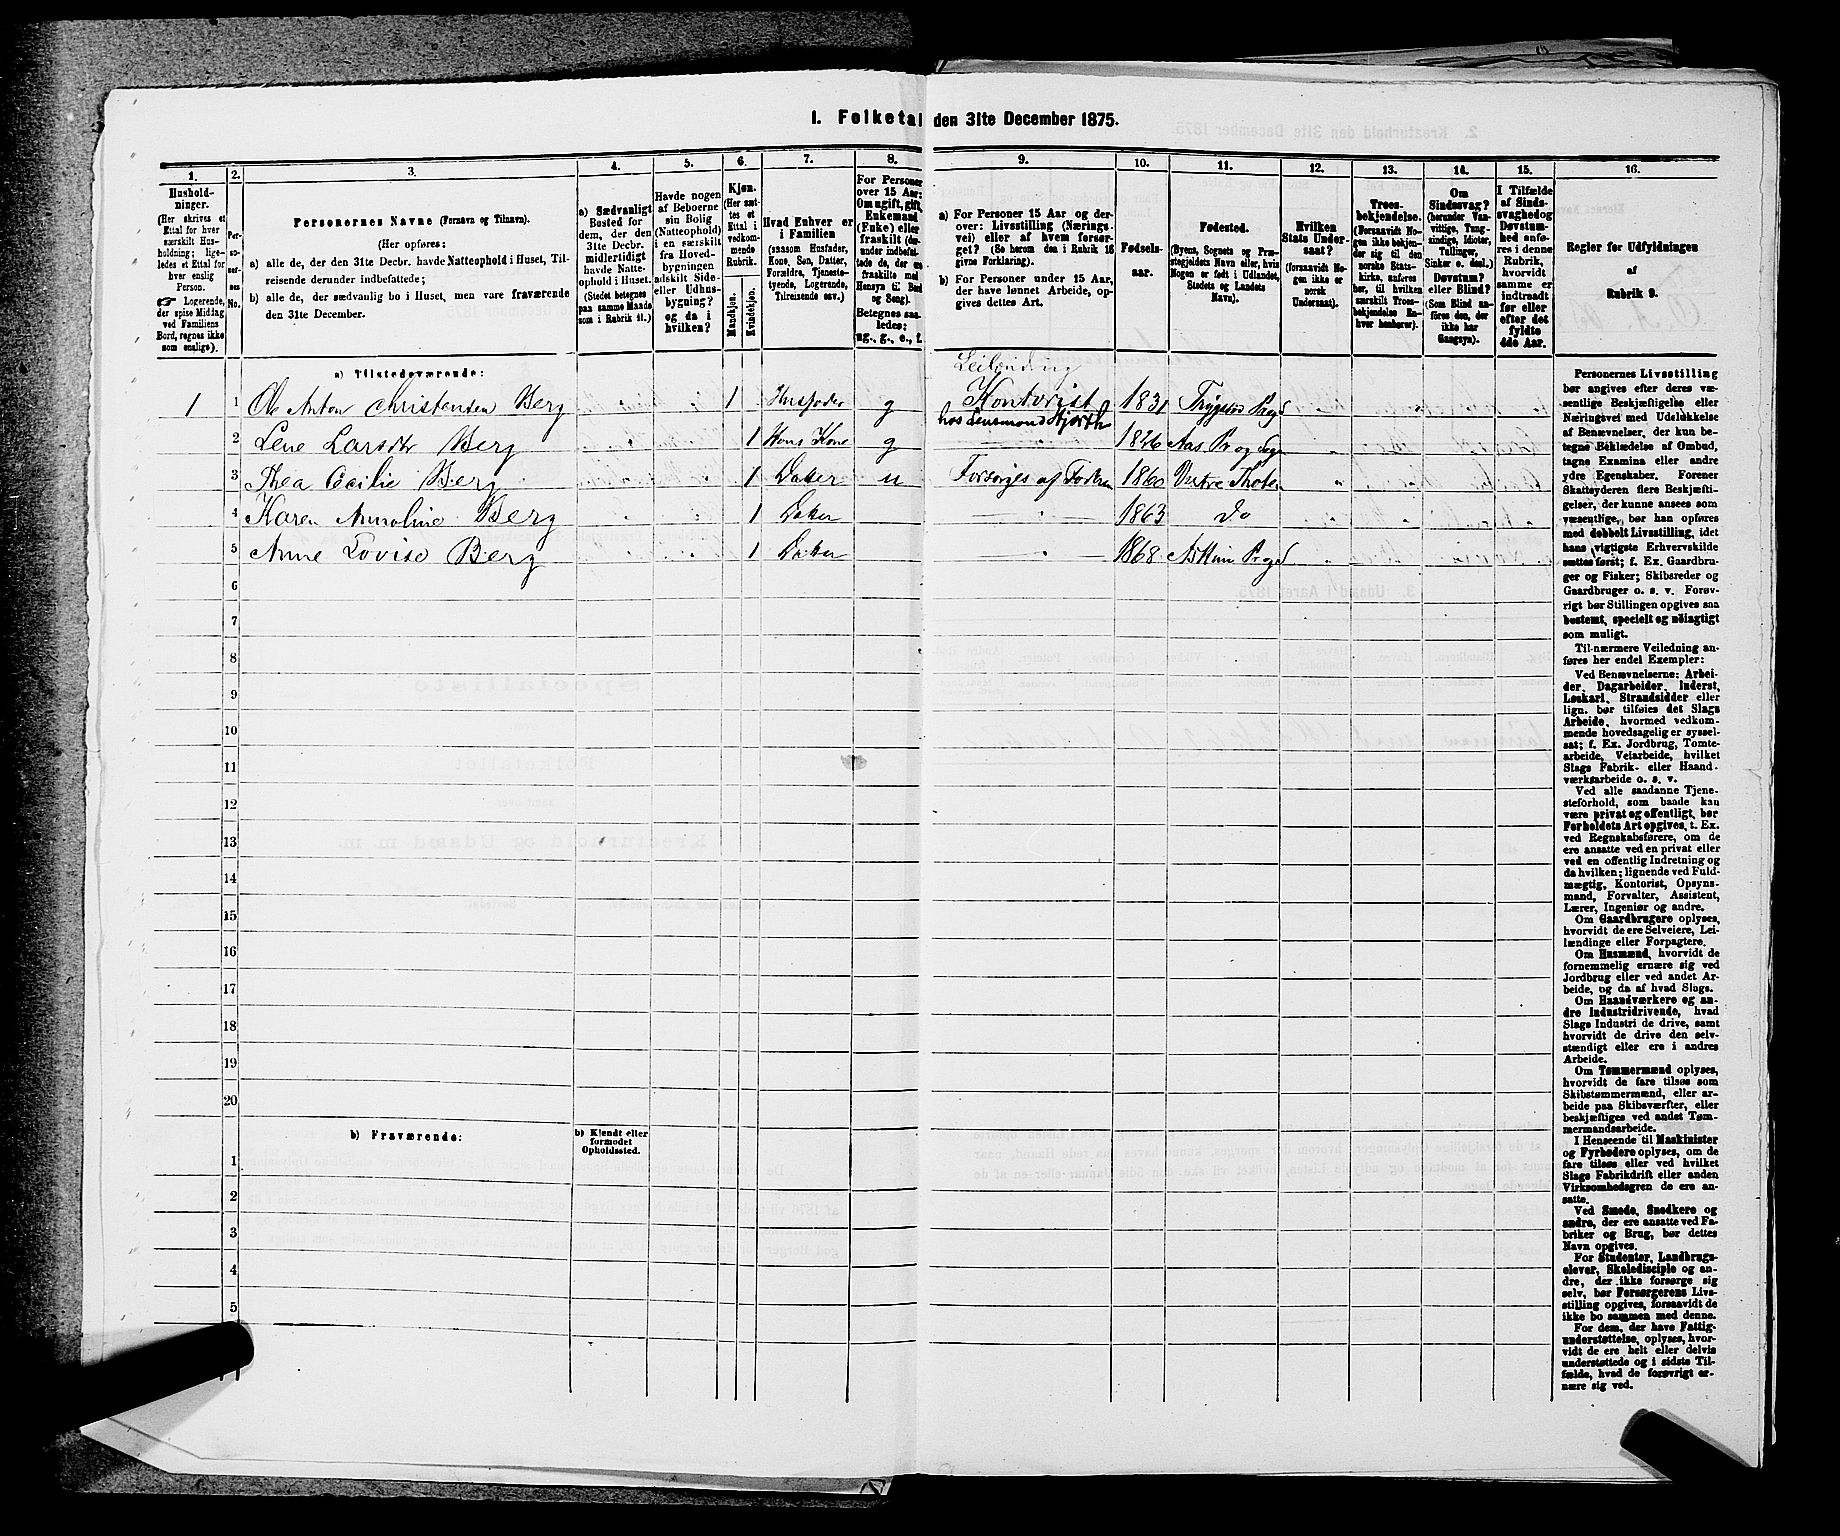 1. Folketal den 31te December 1875.
1. 2. 3. 4. 5. 6. 7. 8. 9. 10. 11. 12. 13. 14. 15. 16.
Hushold-
ninger.
(Her skrives et
Ettal for hver
særskilt Hus-
holdning; lige-
ledes et Ettal for
hver enslig
Person.
Logerende,
der spise Middag
ved Familiens
Bord, regnes ikke
som enslige).
Per-
so-
ner-
nes
No.
Personernes Navne (Fornavn og Tilnavn).
(Her opføres:
a) alle de, der den 31te Decbr. havde Natteophold i Huset, Til-
reisende derunder indbefattede;
b) alle de, der sædvanlig bo i Huset, men vare fraværende
den 31te December.
a) Sædvanligt
Bosted for
dem, der den
31te Decbr.
midlertidigt
havde Natte-
ophold i Huset.
(Stedet betegnes
paa samme Maade
som i Rubrik 11.)
Havde nogen
af Beboerne
sin Bolig
(Natteophold)
i en særskilt
fra Hoved-
bygningen
adskilt Side-
eller Udhus-
bygning?
og da i
hvilken?
Kjøn.
(Her sæt-
tes et
Ettal i
vedkom-
mende
Rubrik.
Mandkjøn.
Kvindekjøn.
Hvad Enhver er
i Familien
(saasom Husfader,
Kone, Søn, Datter,
Forældre, Tjeneste-
tyende, Logerende,
Tilreisende osv.)
For Personer
over 15 Aar:
Om ugift, gift,
Enkemand
(Enke) eller
fraskilt (der-
under indbefat-
tede da, der ere
fraskilte med
Hensyn til Bord
og Seng).
Betegnes saa-
ledes:
ug., g., e., f.
a) For Personer 15 Aar og der-
over: Livsstilling (Nærings-
vei) eller af hvem forsør-
get? (Se herom den i Rubrik 16
givne Forklaring).
b) For Personer under 15 Aar,
der have lønnet Arbeide, op-
gives dettes Art.
Fødsels-
aar.
Fødested.
(Byens, Sognets og Præ-
stegjeldets Navn eller, hvis
Nogen er født i Udlandet,
Stedets og Landets
Navn).
Hvilken
Stats Under-
saat?
(forsaavidt No-
gen ikke er
norsk
Undersaat).
Troes-
bekjendelse.
(Forsaavidt No-
gen ikke bekjen-
der sig til den
norske Stats-
kirke, anføres
her, til hvilken
særskilt Troes-
bekjendelse En-
hver henhører).
Om
Sindssvag?
(herunder Van-
vittige, Tung-
sindige, Idioter,
Tullinger,
Sinker o. desl.)
Døvstum?
eller Blind?
(Som Blind an-
føres den, der
ikke har
Gangsyn).
I Tilfælde
af Sinds-
svaghed og
Døvstum-
hed anfø-
res i denne
Rubrik,
hvorvidt
samme er
indtraadt
før eller
efter det
fyldte
4de Aar.
Regler for Udfyldningen
af
Rubrik 9.
a) Tilstedeværende:
Leilænding
1 1 Ole Anton Christensen Berg 1 Husfader g Kontorist 1831 Trygstad Prgd
hos Lensmand Hjorth
2 Lene Larsdtr Berg 1 Hans Kone g 1826 Aas Pr og Sogn
3 Thea Cecilie Berg 1 Datter u Forsørges af Faderen 1860 Vestre Thoten
4 Karen Annoline Berg 1 Datter 1863 do
5 Anne Lovise Berg 1 Datter 1868 Askim Prgd
6
7
8
9
10
11
12
13
14
15
16
17
18
19
20
b) Fraværende:
b) Kjendt eller
formodet
Opholdssted.
1
2
3
4
5
Personernes Livsstilling
bør angives efter deres væ-
sentlige Beskjæftigelse eller
Næringsvei med Udelukkelse
af Benævnelser, der kun be-
tegne Beklædelse af Ombud,
tagne Examina eller andre
ydre Egenskaber. Forener
Skatteyderen flere Beskjæfti-
gelser, der kunne ansees som
væsentlige, bør han opføres
med dobbelt Livsstilling, idet
hans vigtigste Erhvervskilde
sættes først; f. Ex. Gaardbru-
ger og Fisker; Skibsreder og
Gaardbruger o. s. v. Forøv-
rigt bør Stillingen opgives saa
bestemt, specielt og nøiagtigt
som muligt.
Til nærmere Veiledning an-
føres her endel Exempler:
Ved Benævnelserne: Arbei-
der, Dagarbeider, Inderst,
Løskarl, Strandsidder eller
lign. bør tilføies det Slags
Arbeide, hvormed vedkom-
mende hovedsagelig er syssel-
sat; f. Ex. Jordbrug, Tomte-
arbeide, Veiarbeide, hvilket
Slags Fabrik- eller Haand-
værksarbeide o. s. v.
Ved alle saadanne Tjene-
steforhold, som baade kan
være privat og offentligt, bør
Forholdets Art opgives, t. Ex.
ved Regnskabsførere, om de
ere ansatte ved en privat eller
ved en offentlig Indretning og
da hvilken; lignende ved Fuld-
mægtig, Kontorist, Opsyns-
mand, Forvalter, Assistent,
Lærer, Ingeniør og andre.
Om Gaardbrugere oplyses,
hvorvidt de ere Selveiere, Lei-
lændinge eller Forpagtere.
Om Husmænd, hvorvidt de
fornemmelig ernære sig ved
Jordbrug eller ved andet Ar-
beide, og da af hvad Slags.
Om Haandværkere og an-
dre Industridrivende, hvad
Slags Industri de drive, samt
hvorvidt de drive den selv-
stændigt eller ere i andres
Arbeide.
Om Tømmermænd oplyses,
hvorvidt de fare tilsøs som
Skibstømmermænd, eller ar-
beide paa Skibsværfter, eller
beskjæftiges ved andet Tøm-
mermandsarbeide.
I Henseende til Maskinister
og Fyrbødere oplyses, om de
fare tilsøs eller ved hvilket
Slags Fabrikdrift eller anden
Virksomhedsgren de ere an-
satte.
Ved Smede, Snedkere og
andre, der ere ansatte ved Fa-
briker og Brug, bør dettes
Navn opgives.
For Studenter, Landbrugs-
elever, Skoledisciple og an-
dre, der ikke forsørge sig
selv, bør Forsørgerens Livs-
stilling opgives, forsaavidt de
ikke bo sammen med denne.
For dem, der have Fattig-
understøttelse, oplyses, hvor-
vidt de ere helt eller delvis
understøttede og i sidste Til-
fælde, hvad de forøvrigt er-
nære sig ved.